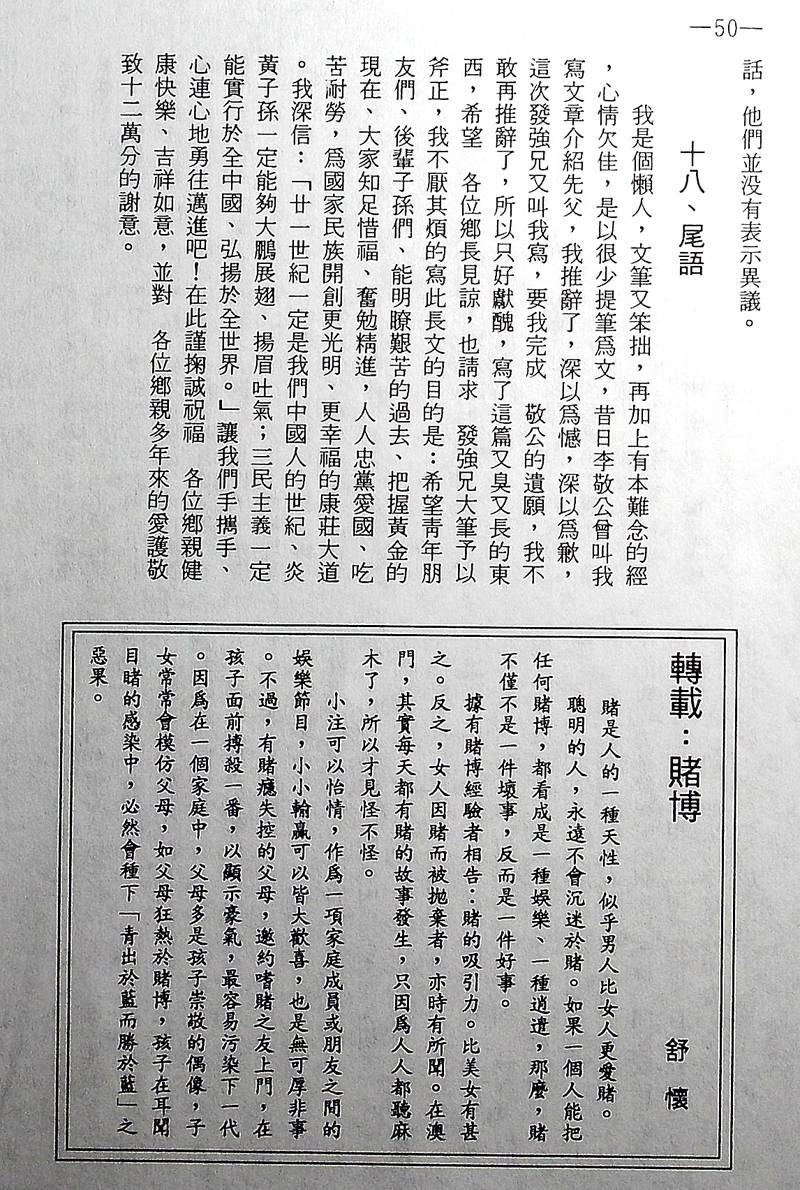 —50—
話，他們並没有表示異議。
十八、尾語
我是個懶人，文筆又笨拙，再加上有本難念的經
，心情欠佳，是以很少提筆爲文，昔日李敬公曾叫我
寫文章介紹先父，我推辭了，深以爲憾，深以爲歉，
這次發強兄又叫我寫，要我完成　敬公的遺願，我不
敢再推辭了，所以只好獻醜，寫了這篇又臭又長的東
西，希望　各位鄉長見諒，也請求　發強兄大筆予以
斧正，我不厭其煩的寫此長文的目的是：希望青年朋
友們、後輩子孫們、能明瞭艱苦的過去、把握黃金的
現在、大家知足惜福、奮勉精進，人人忠黨愛國、吃
苦耐勞，爲國家民族開創更光明、更幸福的康莊大道
。我深信：「廿一世紀一定是我們中國人的世紀、炎
黃子孫一定能夠大鵬展翅、揚眉吐氣；三民主義一定
能實行於全中國、弘揚於全世界。」讓我們手攜手、
心連心地勇往邁進吧！在此謹掬誠祝福　各位鄉親健
康快樂、吉祥如意，並對　各位鄉親多年來的愛護敬
致十二萬分的謝意。
轉載：賭博
舒懷
賭是人的一種天性，似乎男人比女人更愛賭。
聰明的人，永遠不會沉迷於賭。如果一個人能把
任何賭博，都看成是一種娛樂、一種逍遣，那麼，賭
不僅不是一件壞事，反而是一件好事。
據有賭博經驗者相告：賭的吸引力。比美女有甚
之。反之，女人因賭而被拋棄者，亦時有所聞。在澳
門，其實每天都有賭的故事發生，只因爲人人都聽麻
木了，所以才見怪不怪。
小注可以怡情，作爲一項家庭成員或朋友之間的
娛樂節目，小小輸贏可以皆大歡喜，也是無可厚非事
。不過，有賭癮失控的父母，邀約嗜賭之友上門，在
孩子面前搏殺一番，以顯示豪氣，最容易污染下一代
。因爲在一個家庭中，父母多是孩子崇敬的偶像，子
女常常會模仿父母，如父母狂熱於賭博，孩子在耳聞
目睹的感染中，必然會種下「青出於藍而勝於藍」之
惡果。